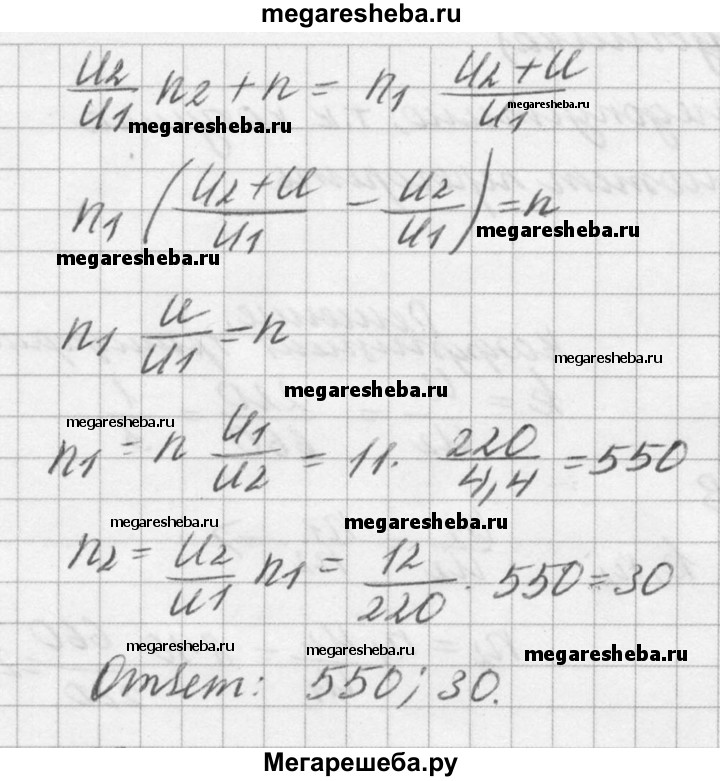 megaresheba.ru
u2/u1 n2 + n = n1 (u2 + u)/u1
megaresheba.ru
megaresheba.ru
n1 ((u2 + u)/u1 − u2/u1) = n
megaresheba.ru
megaresheba.ru
n1 u/u1 = n
megaresheba.ru
megaresheba.ru
megaresheba.ru
n1 = n u1/u2 = 11 · 220/4,4 = 550
megaresheba.ru
megaresheba.ru
n2 = u2/u1 n1 = 12/220 · 550 = 30
megaresheba.ru
megaresheba.ru
megaresheba.ru
Ответ: 550; 30.
Мегарешеба.ру